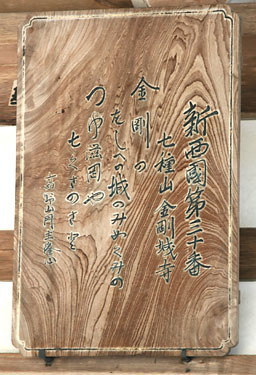 新西國第三十番
七種山 金剛城寺
金剛の
をしへの城のみめくみの
つゆ滋岡や
七くさのさと